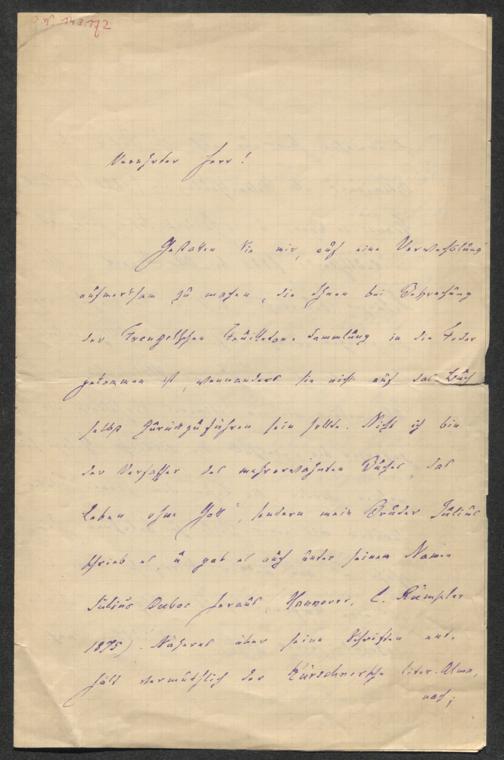 Verehrter Herr!
Gestatten Sie mir, auf eine Verwechslung
aufmerksam zu machen, die Ihnen bei Besprechung
der Feuilleton-Sammlung in die Feder
gekommen ist, wennanders sie nicht auf das Buch
selbst zurückzuführen sein sollte. Nicht ich bin
der Verfasser des mehrerwähnten Buches „das
Leben ohne Gott“, sondern mein Bruder Julius
schrieb es, u. gab es auch unter seinem Namen
Julius Duboc heraus, Hannover, C. Rümpler
1875). Näheres über seine Schriften ent-
hält vermuthlich der Kürschnersche liter. Alma-
nach;